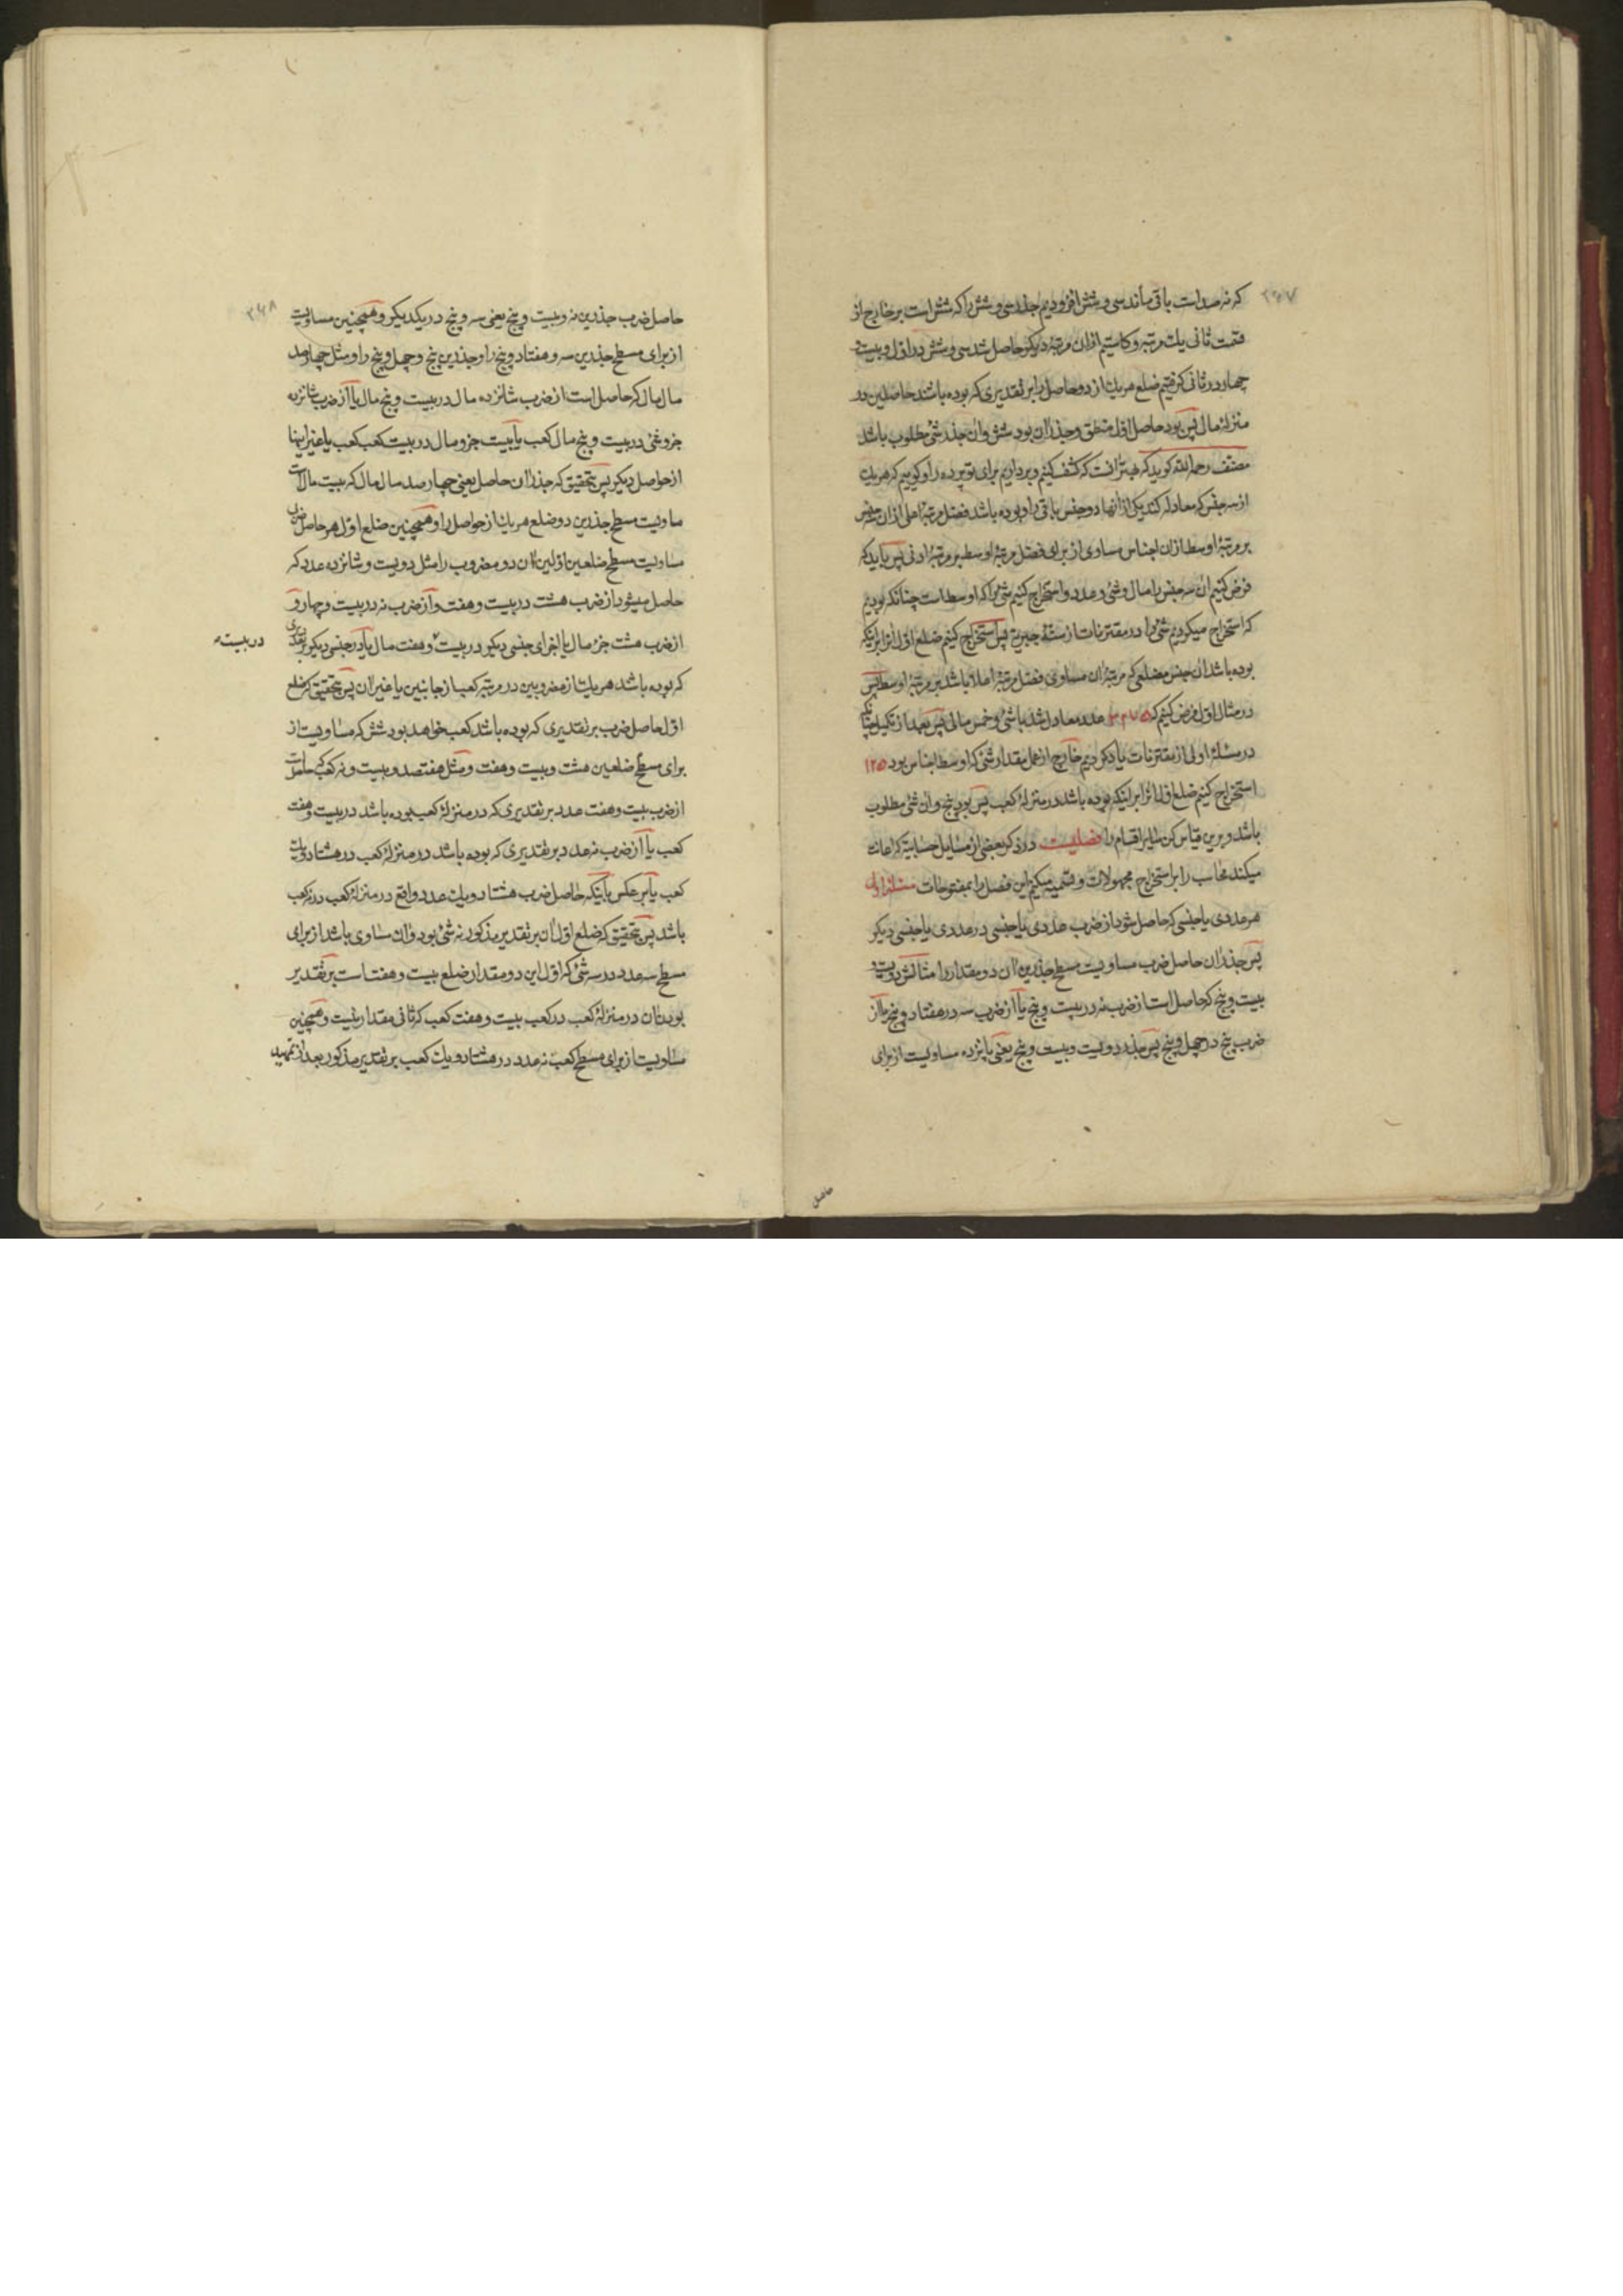 ۲۶۷
که نه صد است باقی ماند سی و شش افزودیم جذر سی و شش را که شش است بر خارج از
قسمت ثانی یک مرتبه و کاستیم ازان مرتبهٔ دیگر حاصل شد سی و شش در اول و بیست و
چهار در ثانی گرفتیم ضلع هر یک از دو حاصل را بر تقدیری که بوده باشند حاصلین در
منزلهٔ مال پس بود حاصل اول منطق و جذر ان بود شش و ان جذر شئ مطلوب باشد
مصنف رحمه الله گوید که بهتر انست که کشف کنیم و برداریم برای تو پرده را و گوییم که هر یک
از سه جنس که معادله کند یکی از انها دو جنس باقی را و بوده باشد فضل مرتبهٔ اعلی ازان سه جنس
بر مرتبهٔ اوسط ازان اجناس مساوی از برای فضل مرتبهٔ اوسط بر مرتبهٔ ادنی پس باید که
فرض کنیم ان سه جنس را مال و شئ و عدد و استخراج کنیم شئ را که اوسط است چنانکه بودیم
که استخراج میکردیم شئ را در مقترنات از ستهٔ جبریة پس استخراج کنیم ضلع اول انرا بر اینکه
بوده باشد ان جنس مضلعی که مرتبهٔ ان مساوی فضل مرتبهٔ اعلا باشد بر مرتبهٔ اوسط پس
در مثال اول فرض کنیم که ۳۲۷۵ عدد معادل شد با شئ و خمس مالی پس بعد از تکمیل چنانکه
در مسئلهٔ اولی از مقترنات یاد کردیم خارج از عمل مقدار شئ که اوسط اجناس بود ۱۲۵
استخراج کنیم ضلع اول انرا بر اینکه بوده باشد در منزلهٔ کعب پس بود پنج و ان شئ مطلوب
باشد و برین قیاس کن سایر اقسام را فصلیست در ذکر بعضی از مسایل حسابیة که اعانت
میکند محاسب را بر استخراج مجهولات و تسمیه میکنم این فصل را بمفتوحات مسئلهٔ اولی
هر عددی یا جنسی که حاصل شود از ضرب عددی یا جنسی در عددی یا جنسی دیگر
پس جذر ان حاصل ضرب مساویست مسطح جذرین ان دو مقدار را مثالش دویست و
بیست و پنج که حاصل است از ضرب نه در بیست و پنج یا از ضرب سه در هفتاد و پنج یا از
ضرب پنج در چهل و پنج پس جذر دویست و بیست و پنج یعنی پانزده مساویست از برای
حاصل
۲۶۸
حاصل ضرب جذرین نه و بیست و پنج یعنی سه و پنج در یکدیگر و همچنین مساویست
از برای مسطح جذرین سه و هفتاد و پنج را و جذرین پنج و چهل و پنج را و مثل چهارصد
مال مال که حاصل است از ضرب شانزده مال در بیست و پنج مال یا از ضرب شانزده
جزو شئ در بیست و پنج مال کعب یا بیست جزو مال در بیست کعب کعب یا غیر اینها
از حواصل دیگر پس بتحقیق که جذر ان حاصل یعنی چهارصد مال مال که بیست مال است
مساویست مسطح جذرین دو ضلع هر یک از حواصل را و همچنین ضلع اول هر حاصل ضربی
مساویست مسطح ضلعین اولین ان دو مضروب را مثل دویست و شانزده عدد که
حاصل میشود از ضرب هشت در بیست و هفت و از ضرب نه در بیست و چهار و
از ضرب هشت جزء مال یا اجزای جنسی دیگر در بیست و هفت مال یا در جنسی دیگر بر تقدیری
در بیست
که بوده باشد هر یک از مضروبین در مرتبهٔ کعب از جانبین یا غیر ان پس بتحقیق که ضلع
اول حاصل ضرب بر تقدیری که بوده باشد کعب خواهد بود شش که مساویست از
برای مسطح ضلعین هشت و بیست و هفت و مثل هفتصد و بیست و نه کعب که حاصل است
از ضرب بیست و هفت عدد بر تقدیری که در منزلهٔ کعب بوده باشد در بیست و هفت
کعب یا از ضرب نه عدد بر تقدیری که بوده باشد در منزلهٔ کعب در هشتاد و یک
کعب یا بر عکس با اینکه حاصل ضرب هشتاد و یک عدد واقع در منزلهٔ کعب در نه کعب
باشد پس بتحقیق که ضلع اول ان بر تقدیر مذکور نه شئ بود و ان مساوی باشد از برای
مسطح سه عدد در سه شئ که اول این دو مقدار ضلع بیست و هفت است بر تقدیر
بودن ان در منزلهٔ کعب در کعب بیست و هفت کعب که ثانی مقدارینست و همچنین
مساویست از برای مسطح کعب نه عدد در هشتاد و یک کعب بر تقدیر مذکور بعد از تمهید